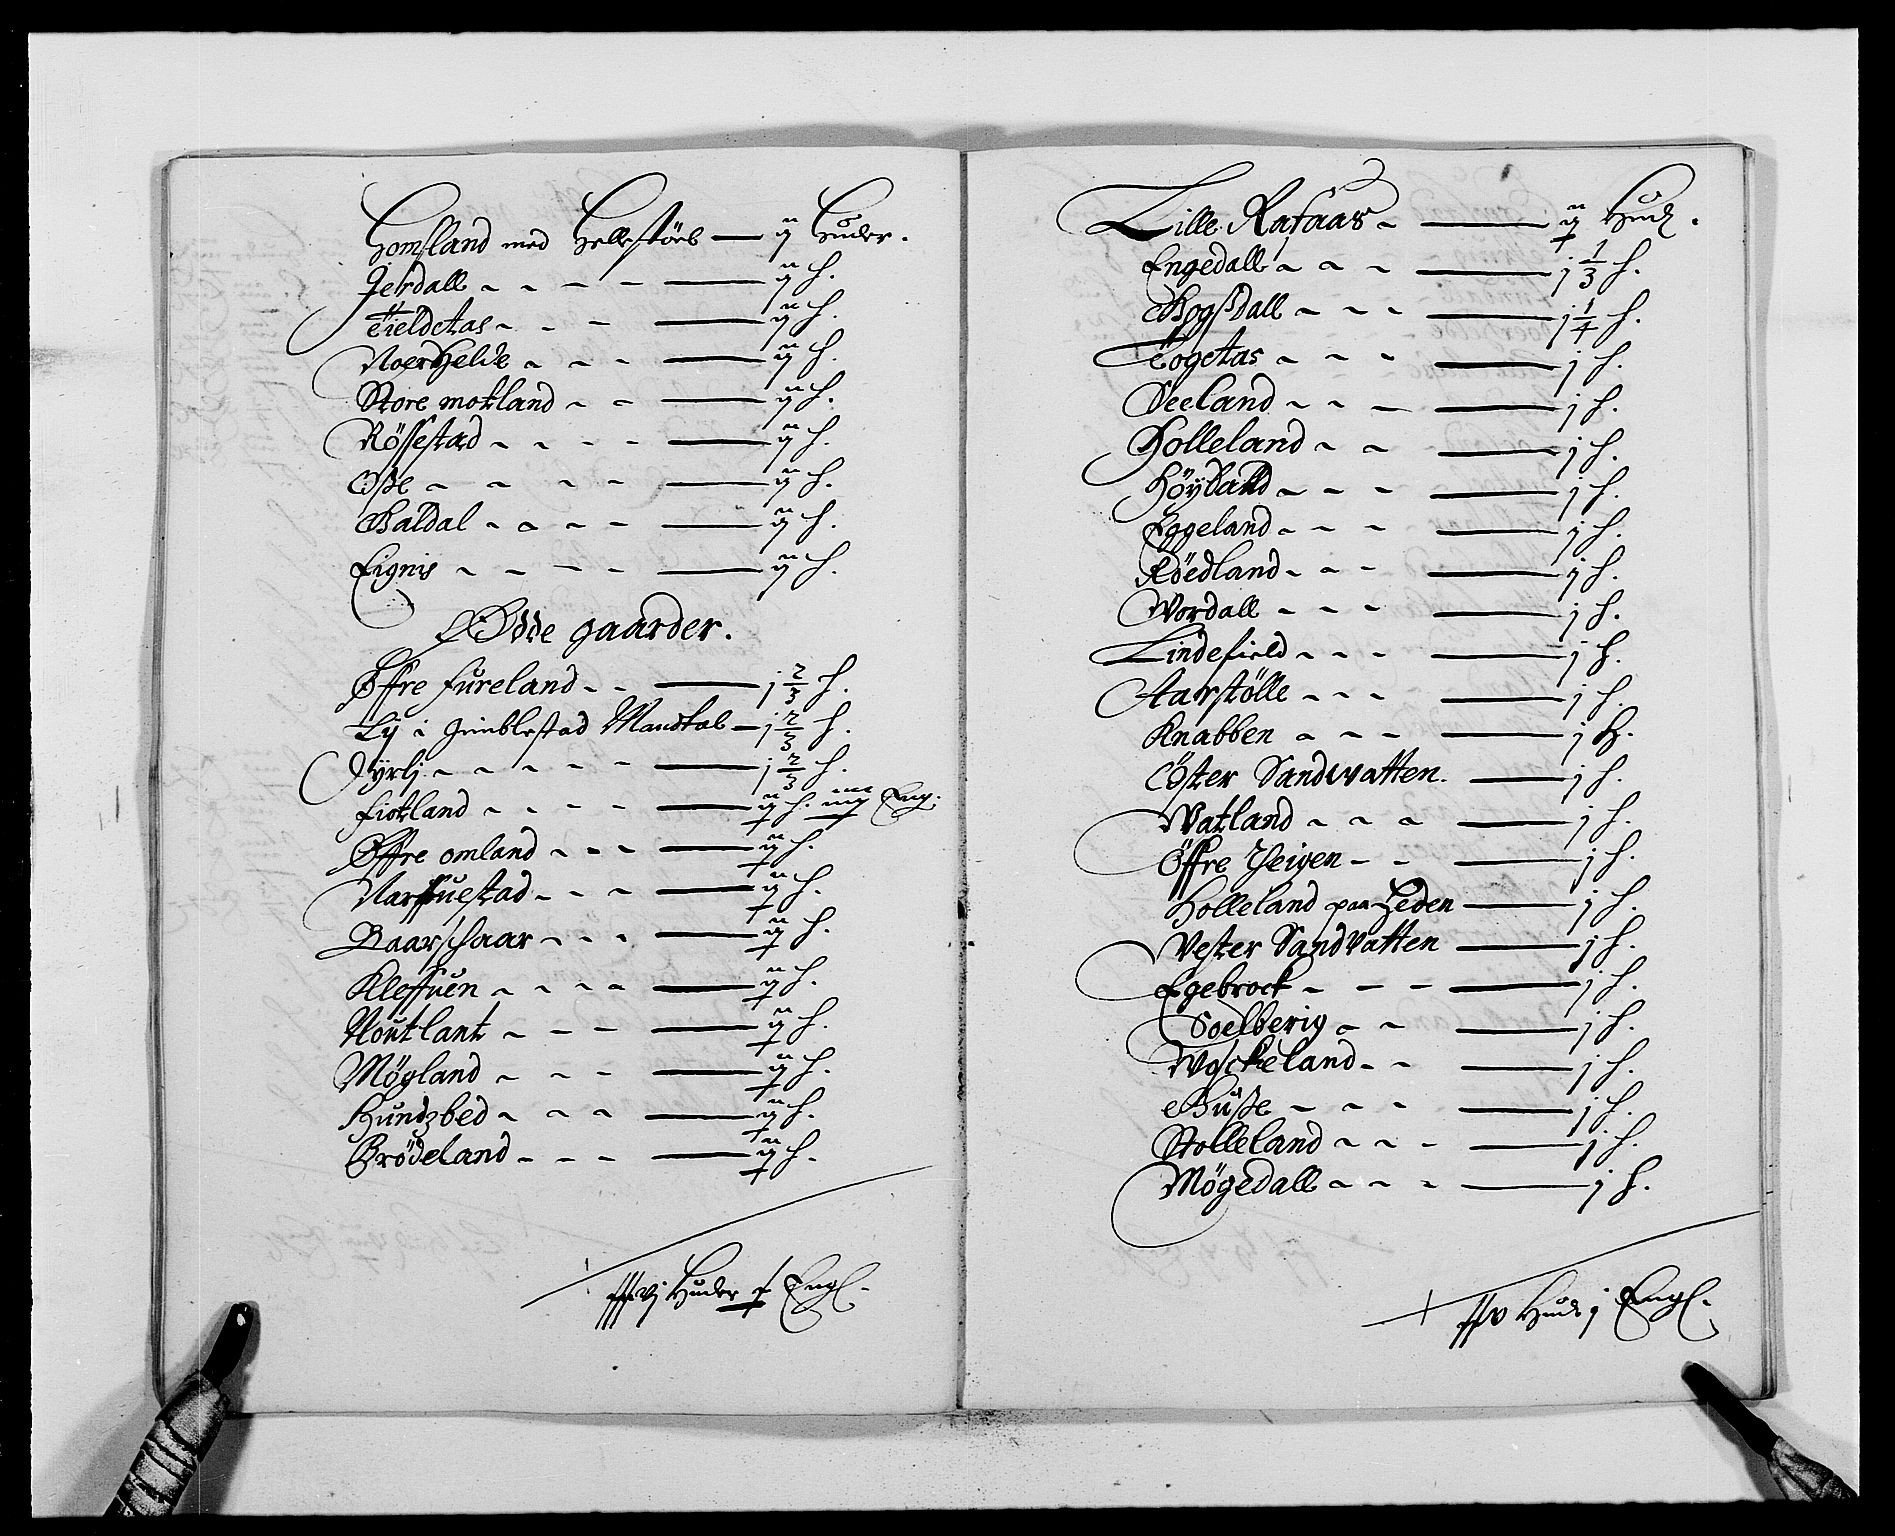 Homsland med Hellestöel — ij Huder.
Jerdall - - - - — ij h.
Tieldetas - - - — ij h.
Noerhelde - - - — ij h.
Store mokland - - — ij h.
Rössestad - - - - — ij h.
Oße - - - - — ij h.
Galdal - - - - — ij h.
Eignis - - - - — ij h.
Ødde gaarder.
Øffre fureland - - — j 2/3 h.
Lij i Mandtal — j 2/3 h.
Jyrlj - - - - - — j 2/3 h.
fiokland - - - - — ij h. Eng.
Øffre omland - - - — ij h.
Narfuestad - - - — ij h.
Baarschaar - - - — ij h.
Kleffuen - - - - — ij h.
Noutlant - - - — ij h.
Mögland - - - — ij h.
Hundzbed - - - — ij h.
Brödeland - - - — ij h.
Huder Engl.
Lille Rafaas - — ij Hud.
Engedall - - - — j 1/3 h.
Bogßdall - - - — j 1/4 h.
Togetas - - - — j h.
Seeland - - - — j h.
Holleland - - — j h.
Höyland - - - — j h.
Eggeland - - - — j h.
Röedland - - - — j h.
Wordall - - - — j h.
Lindefield - - - — j h.
Aarstölle - - - — j h.
Knabben - - - — j H.
Öster Sandwatten. — j h.
Watland - - - — j h.
Øffre Heigen - - — j h.
Holleland paa Heden — j h.
Vester Sandvatten — j h.
Egebrock - - - — j h.
Soelberig - - — j h.
Wosckeland - - — j h.
Huße - - - — j h.
Stolleland - - - — j h.
Mögedall - - - — j h.
Hud j Engl.